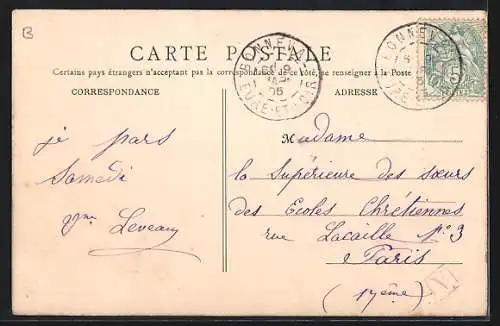 B
CARTE POSTALE
Certains pays étrangers n'acceptant pas la correspondance de ce côté, se renseigner à la Poste
CORRESPONDANCE
ADRESSE
BONNEVAL
05
EURE-ET-LOIR
BONNEVAL
5
je pars
Samedi
Leveau
Madame
la Supérieure des sœurs
des Ecoles Chrétiennes
rue Lacaille N° 3
Paris
(17ème)